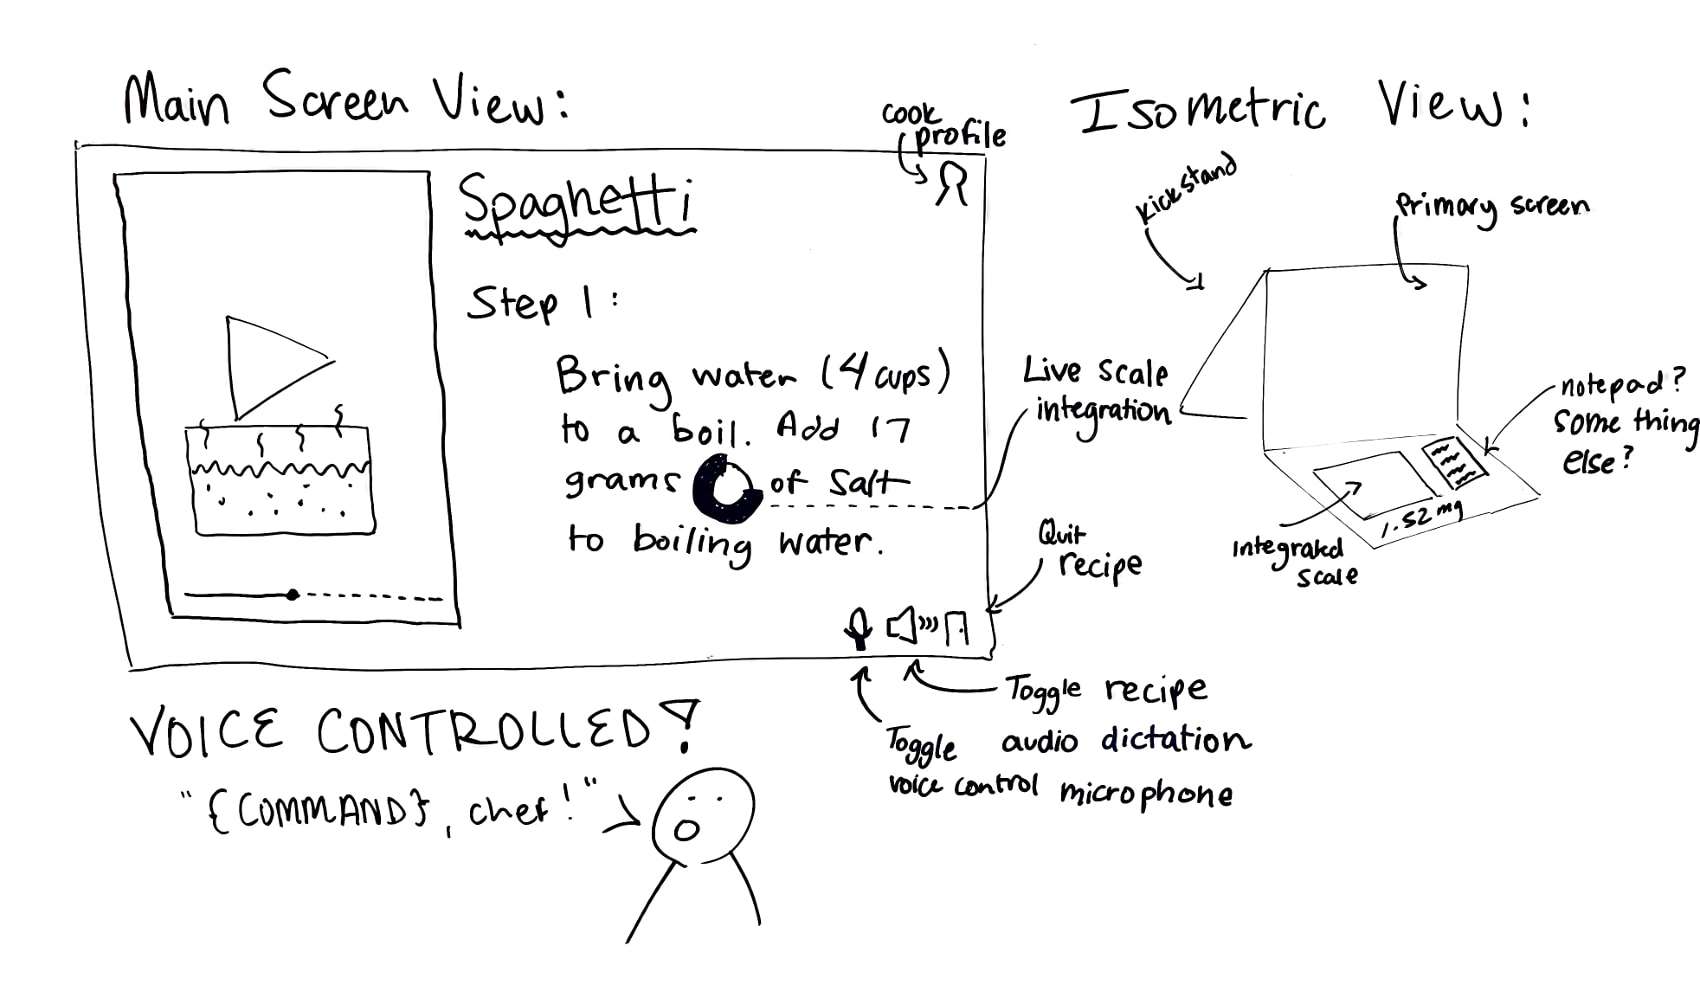 Main Screen View:
cook
profile
Spaghetti
Step 1:
Bring water (4 cups)
to a boil. Add 17
grams of salt
to boiling water.
Live scale
integration
Quit
recipe
Toggle recipe
audio dictation
Toggle
voice control microphone
VOICE CONTROLLED!
"{COMMAND}, chef!"
Isometric View:
kickstand
Primary screen
notepad?
some thing
else?
1.52 mg
Integrated
scale